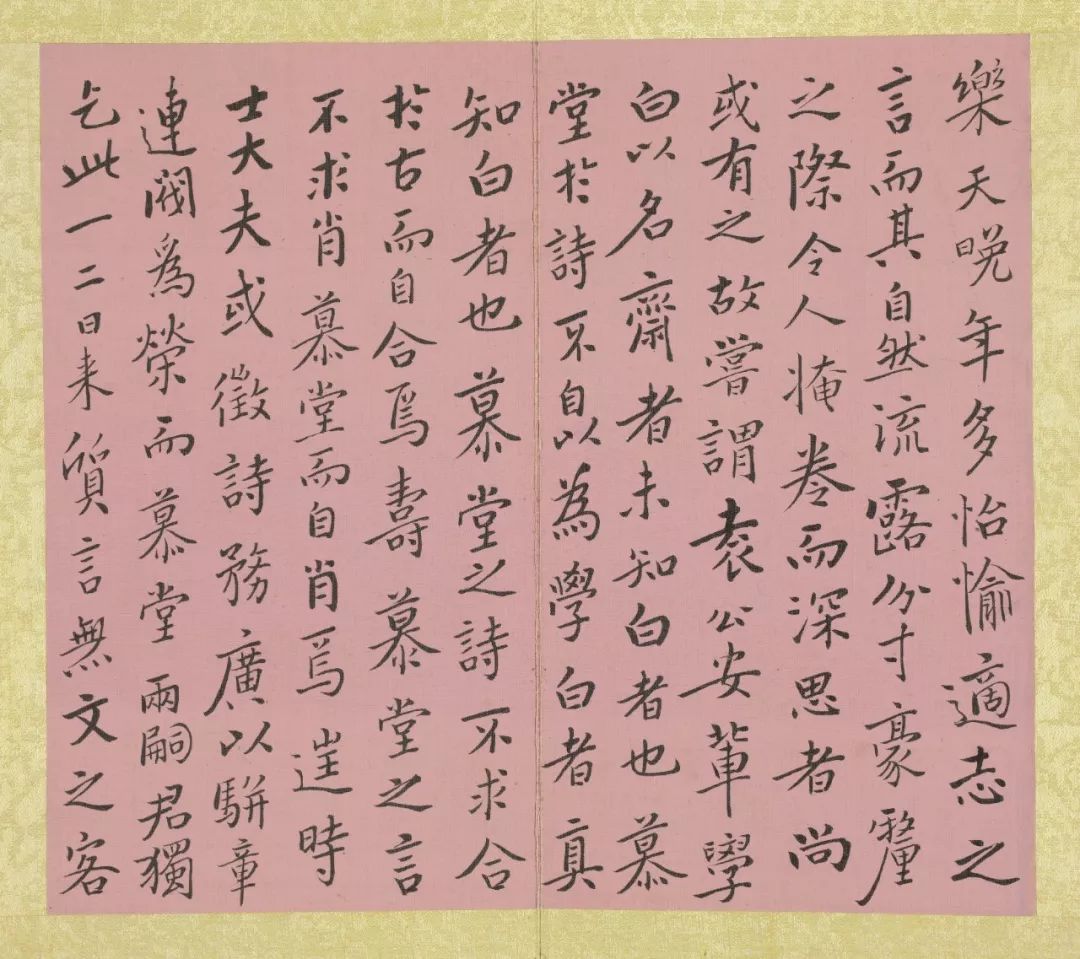 樂天晚年多怡愉適志之
言而其自然流露分寸豪釐
之際令人掩卷而深思者尚
或有之故嘗謂袁公安輩學
白以名齋者未知白者也慕
堂於詩不自以為學白者真
知白者也慕堂之詩不求合
於古而自合焉壽慕堂之言
不求肖慕堂而自肖焉邇時
士大夫或徵詩務廣以駢章
連閥爲榮而慕堂兩嗣君獨
乞此一二日来質言無文之客